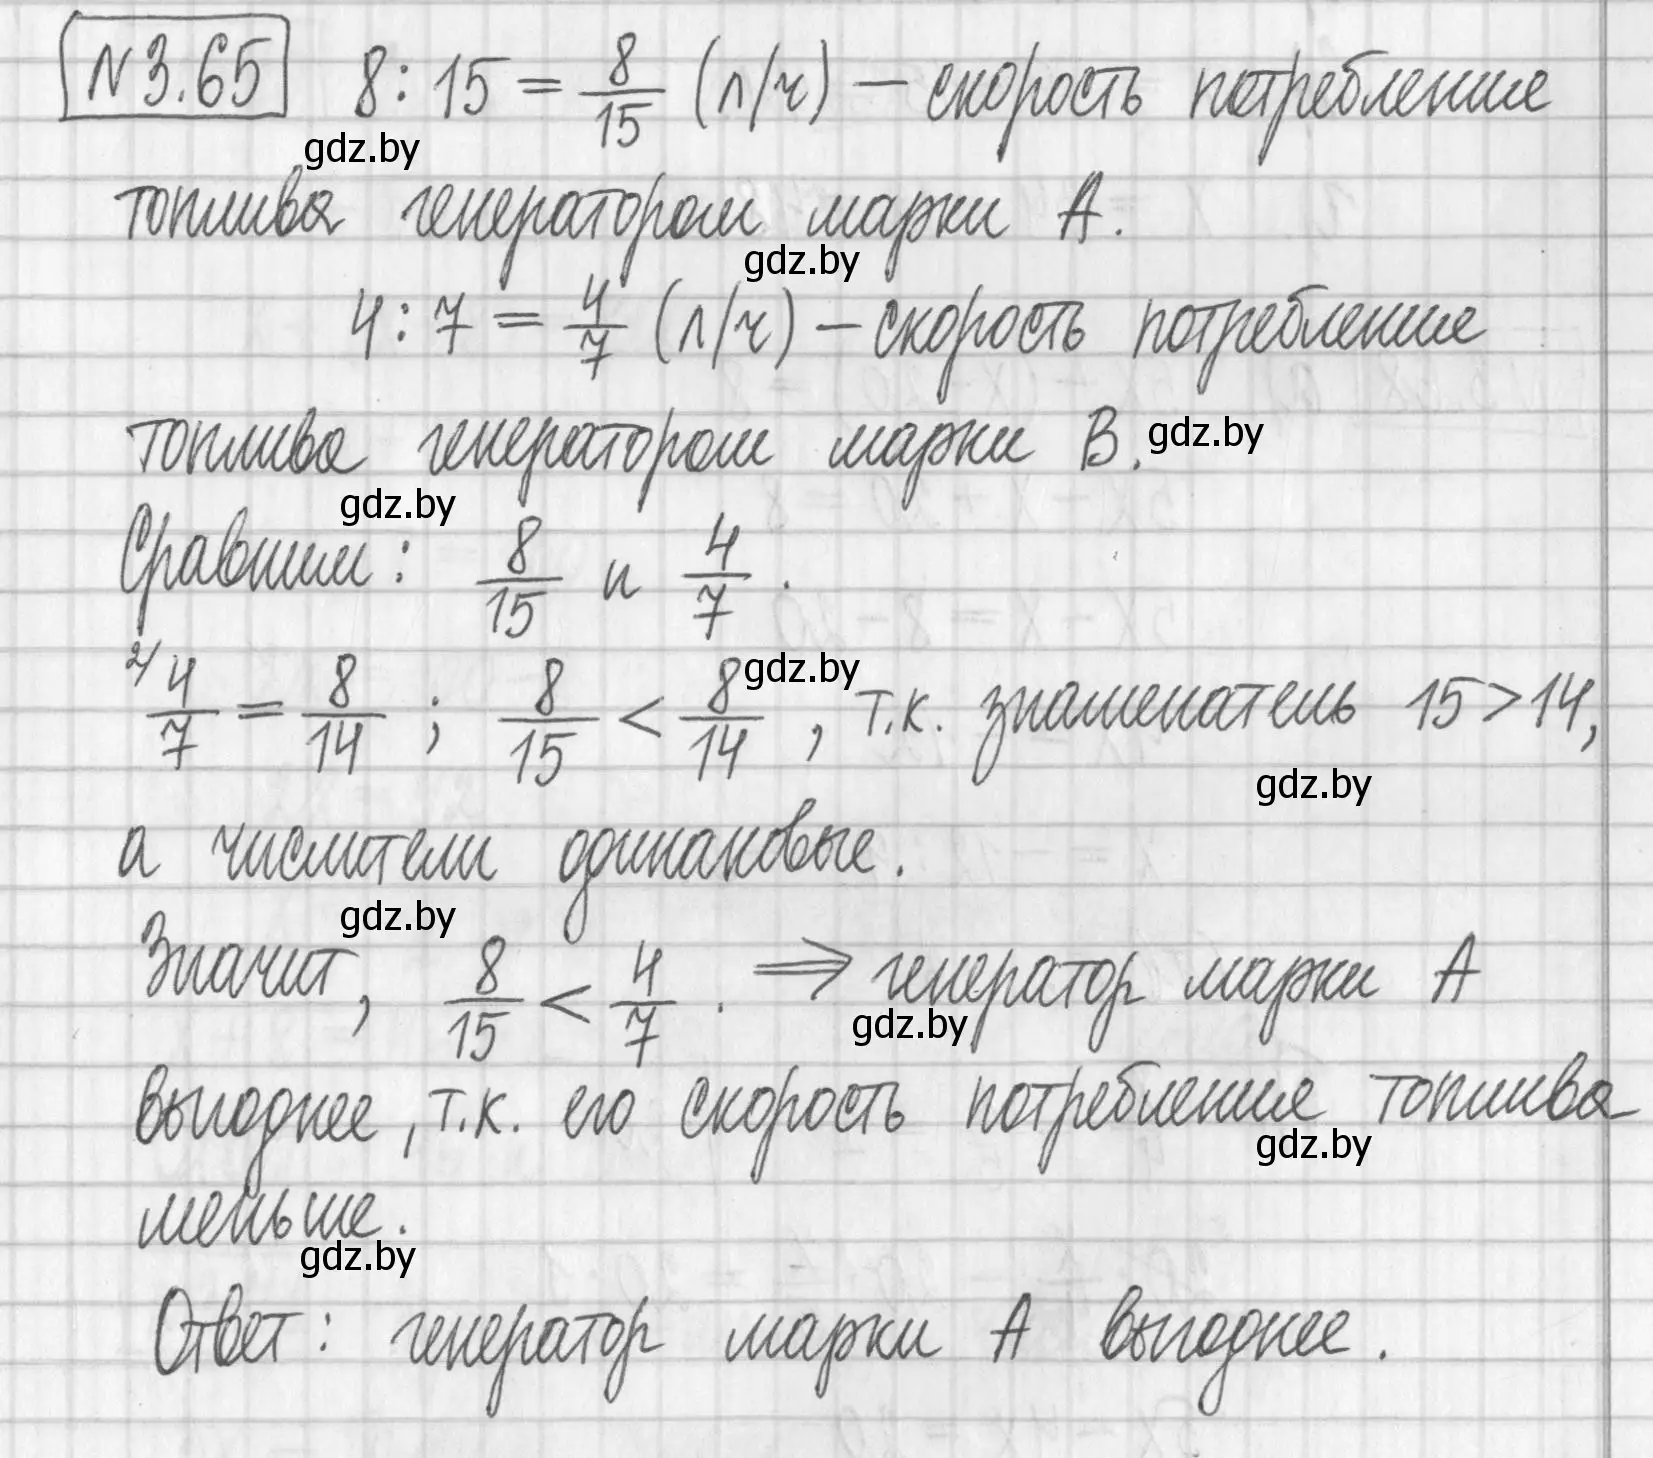 №3.65 8 : 15 = 8/15 (л/ч) — скорость потребление
gdz.by
топлива генератором марки А.
gdz.by
4 : 7 = 4/7 (л/ч) — скорость потребление
топлива генератором марки В.
gdz.by
gdz.by
Сравним: 8/15 и 4/7.
gdz.by
2/ 4/7 = 8/14 ; 8/15 < 8/14 , т.к. знаменатель 15 > 14,
gdz.by
а числители одинаковые.
gdz.by
Значит, 8/15 < 4/7 . ⇒ генератор марки А
gdz.by
выгоднее, т.к. его скорость потребления топлива
gdz.by
меньше.
gdz.by
Ответ: генератор марки А выгоднее.